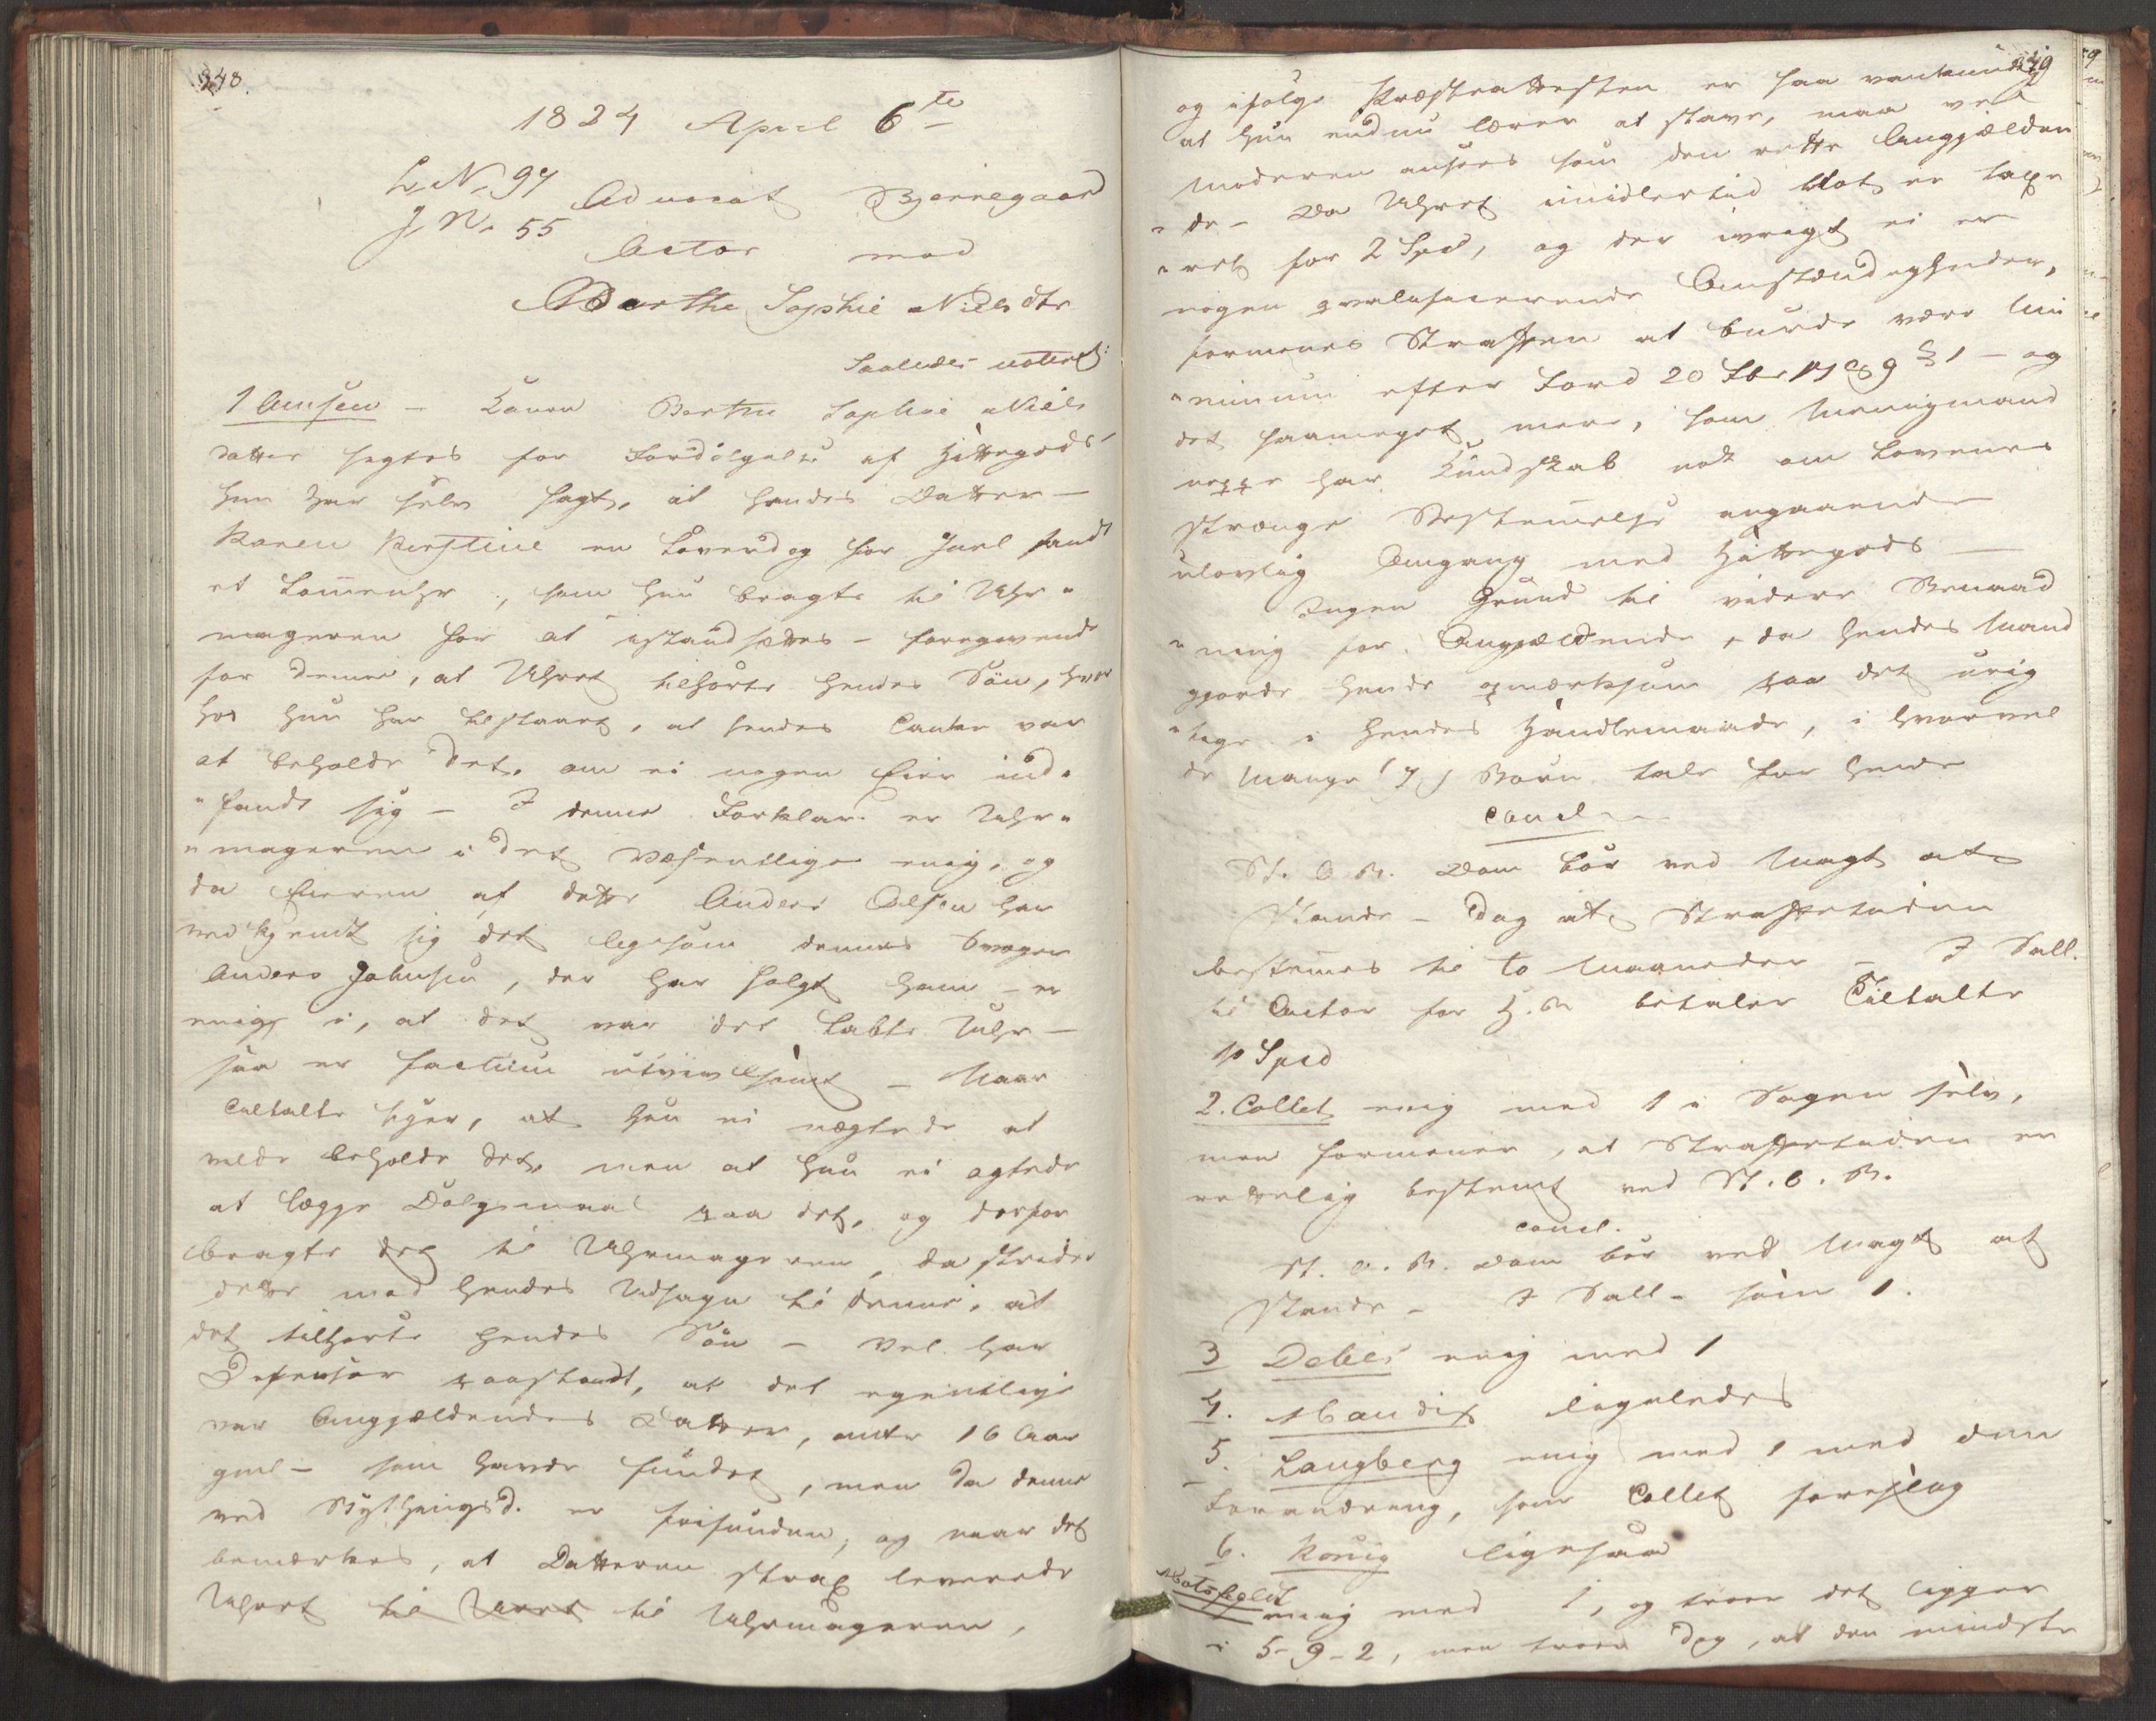 248.
1824 April 6te
L. No 97
J. No 55
Advocat Bjerregaard
Actor mod
Berthe Sophie Nielsdtr
Saaledes voteret:
1 Omsen – Konen Berthe Sophie Niels
datter sigtes for Fordølgelse af Hittegods
hun har selv sagt, at hendes Datter –
Karen Kirstine en Løverdag før Juel fandt
et Lommeuhr, som hun bragte til Uhr„
mageren for at istandsættes – foregivende
for denne, at Uhret tilhørte hendes Søn, hvor
hos hun har tilstaaet, at hendes Tanke var
at beholde det, om ei nogen Eier ind„
„fandt sig – I denne Forklar. er Uhr„
„mageren i det Væsentlige enig, og
da Eieren af dette Anders Olsen har
vedkjendt sig det ligesom dennes Svoger
Anders Johnsen, der har solgt ham – er
enige i, at det var det tabte Uhr –
saa er factum utvivlsomt – Naar
Tiltalte siger, at hun ei nægtede at
vilde beholde det, men at hun ei agtede
at lægge Dølgsmaal paa det, og derfor
bragte det til Uhrmageren, da strider
dette mod hendes Udsagn til denne, at
det tilhørte hendes Søn – Vel har
Defensor paastandt, at det egentlige
var Angjældendes Datter, ante 16 Aar
gml – som havde fundet, men da denne
ved Bythingsd. er frifunden, og naar det
bemærkes, at Datteren strax leverede
Uhret til Uret til Uhrmageren,
249
og ifølge Præsteattesten er saa vankundig
at hun endnu lærer at stave, maa vel
Moderen ansees som den rette Angjælden
„de – Da Uhret imidlertid blot er taxe
„ret for 2 Spd, og der iøvrigt ei er
nogen qvalificerende Omstændigheder,
formenes Straffen at burde være Mi
„nimum efter Ford 20 Fbr 1789 § 1 – og
det saameget mere, som Menigmand
neppe har Kundskab nok om Lovenes
strænge Bestemmelse angaaende
ulovlig Omgang med Hittegods –
Ingen Grund til videre Benaad
„ning for Angjældende, da hendes Mand
gjorde hende opmærksom paa det urig
„tige i hendes Handlemaade, i hvorvel
de mange (7) Børn tale for hende
concl
St. O R. Dom bør ved Magt at
stande – Dog at Straffetiden
bestemmes til to Maaneder – I Sall.
til Actor for H. R betaler Tiltalte
10 Spd
2. Collet enig med 1 i Sagen selv,
men formener, at Straffetiden er
rettelig bestemt ved St. O. R.
concl.
St. O. R. Dom bør ved Magt at
stande – I Sall – som 1.
3 Debes enig med 1
4. Mandix ligeledes
5. Langberg enig med 1 med den
Forandring, som Collet foreslog
6. Konig ligesaa
Motzfeldt
enig med 1, og troer det ligger
i 5-9-2, men troer dog, at den mindste